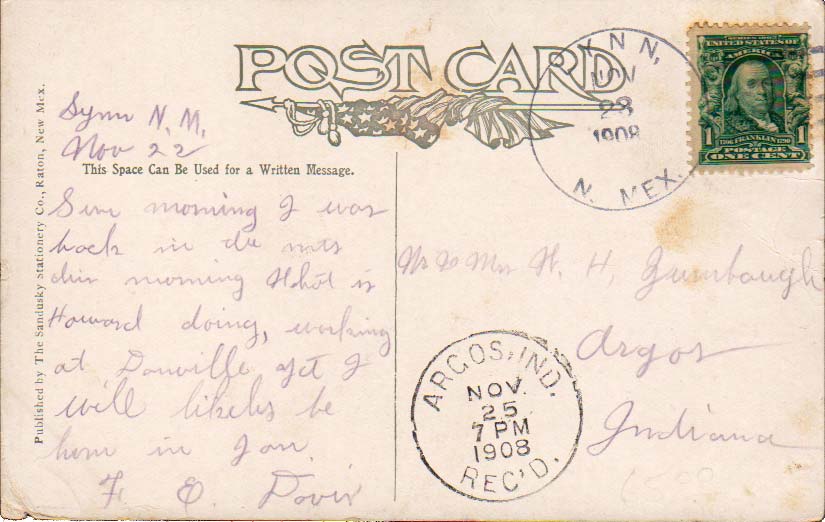 POST CARD
Lynn N.M.
Nov 22
This Space Can Be Used for a Written Message.
Sun morning I was
back in the mts
this morning What is
Howard doing, working
at Danville yet I
will likely be
hom in Jan.
F. O. Davis
Published by The Sandusky Stationery Co., Raton, New Mex.
LYNN,
NOV
23
1908
N. MEX.
SERIES 1902
UNITED STATES OF
AMERICA
1 1
1706 FRANKLIN 1790
POSTAGE
ONE CENT
Mr & Mrs H. H,
Argos
Indiana
ARGOS, IND.
NOV.
25
7 PM
1908
REC'D.